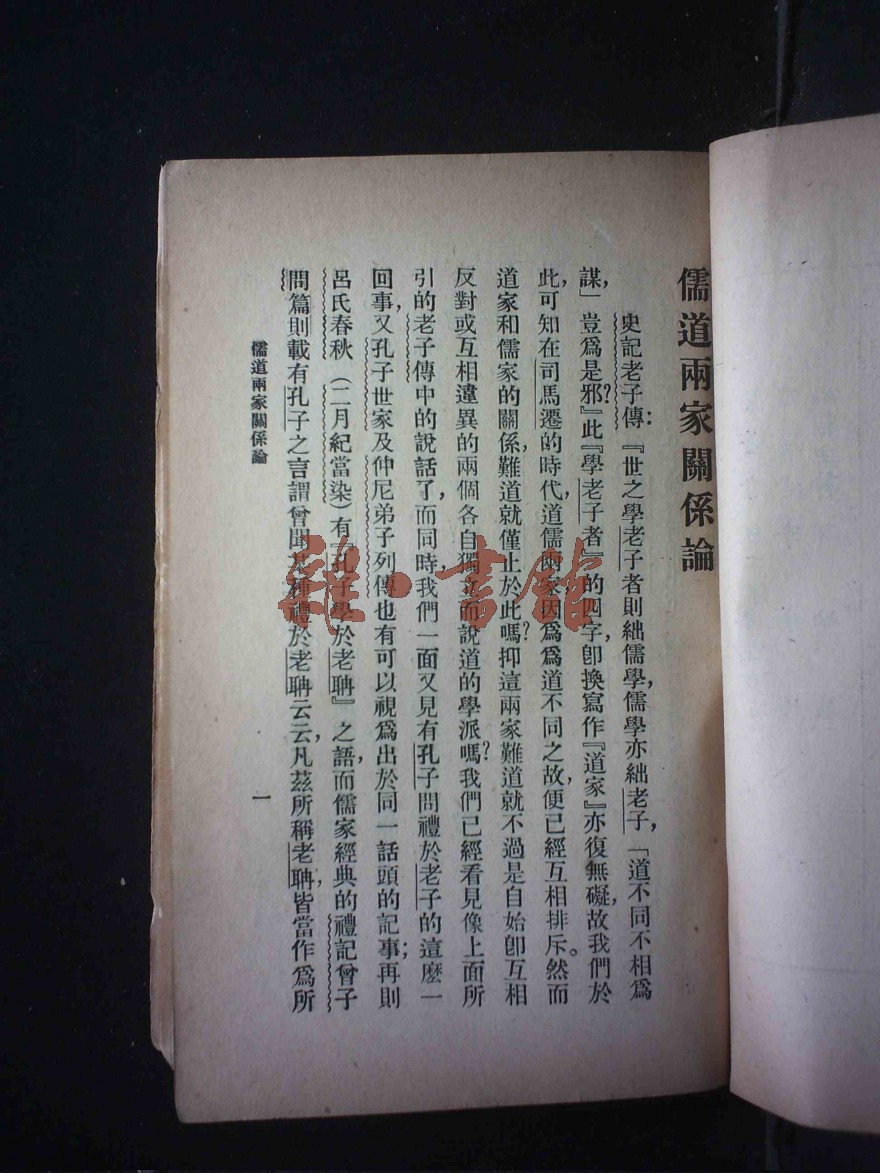 儒道兩家關係論
史記老子傳：『世之學老子者則絀儒學，儒學亦絀老子，「道不同不相爲
謀，」豈爲是邪？』此『學老子者』的四字，卽換寫作『道家』亦復無礙，故我們於
此，可知在司馬遷的時代，道儒兩家，因爲爲道不同之故，便已經互相排斥。然而
道家和儒家的關係，難道就僅止於此嗎？抑這兩家難道就不過是自始卽互相
反對或互相違異的兩個各自獨立而說道的學派嗎？我們已經看見像上面所
引的老子傳中的說話了，而同時，我們一面又見有孔子問禮於老子的這麽一
回事，又孔子世家及仲尼弟子列傳也有可以視爲出於同一話頭的記事；再則
呂氏春秋（二月紀當染）有『孔子學於老聃』之語，而儒家經典的禮記曾子
問篇則載有孔子之言謂曾聞某種禮於老聃云云，凡茲所稱老聃，皆當作爲所
儒道兩家關係論
一
雜·書館